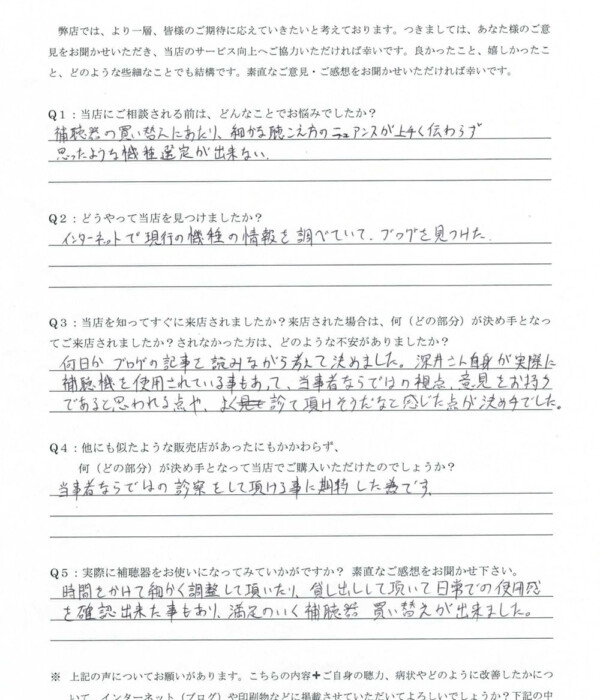 弊店では、より一層、皆様のご期待に応えていきたいと考えております。つきましては、あなた様のご意
見をお聞かせいただき、当店のサービス向上へご協力いただければ幸いです。良かったこと、嬉しかったこ
と、どのような些細なことでも結構です。素直なご意見・ご感想をお聞かせいただければ幸いです。
Q1：当店にご相談される前は、どんなことでお悩みでしたか？
補聴器の買い替えにあたり、細かな聴こえ方のニュアンスが上手く伝わらず
思ったような機種選定が出来ない。
Q2：どうやって当店を見つけましたか？
インターネットで現行の機種の情報を調べていて、ブログを見つけた。
Q3：当店を知ってすぐに来店されましたか？来店された場合は、何（どの部分）が決め手となっ
てご来店されましたか？されなかった方は、どのような不安がありましたか？
何日か ブログの記事を読みながら考えて決めました。深井さん自身が実際に
補聴機を使用されている事もあって、当事者ならではの視点、意見をお持ち
であると思われる点や、よく診て頂けそうだなと感じた点が決め手でした。
Q4：他にも似たような販売店があったにもかかわらず、
何（どの部分）が決め手となって当店でご購入いただけたのでしょうか？
当事者ならではの診察をして頂ける事に期待した為です。
Q5：実際に補聴器をお使いになってみていかがですか？ 素直なご感想をお聞かせ下さい。
時間をかけて細かく調整して頂いたり、貸し出しして頂いて日常での使用感
を確認出来た事もあり、満足のいく補聴器 買い替えが出来ました。
※ 上記の声についてお願いがあります。こちらの内容+ご自身の聴力、病状やどのように改善したかにつ
いて、インターネット（ブログ）や印刷物などに掲載させていただいてよろしいでしょうか？下記の中